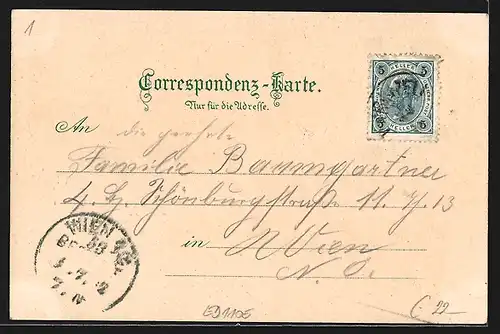 1
Correspondenz-Karte.
Nur für die Adresse.
5 HELLER 5
5 HELLER 5
An die geehrte
Familie Baumgartner
4. Bz. Schönburgstraße 11. Th. 13
in Wien
N. Ö.
WIEN
ED1105
C. 22